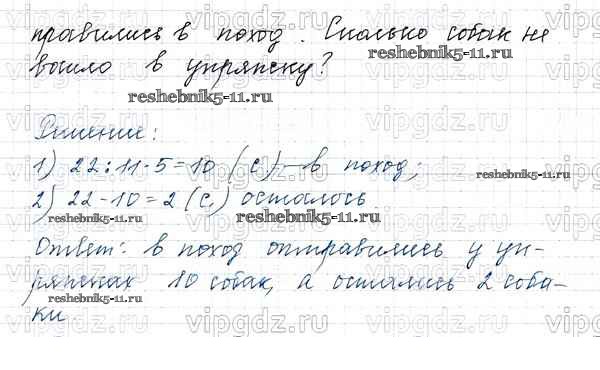 правились в поход. Сколько собак не
вошло в упряжку?
reshebnik5-11.ru
reshebnik5-11.ru
Решение:
1) 22:11·5=10 (с.) – в поход;
reshebnik5-11.ru
2) 22-10=2 (с.) осталось.
reshebnik5-11.ru
reshebnik5-11.ru
Ответ: в поход отправились у уп-
ряжках 10 собак, а остались 2 соба-
reshebnik5-11.ru
ки.
vipgdz.ru